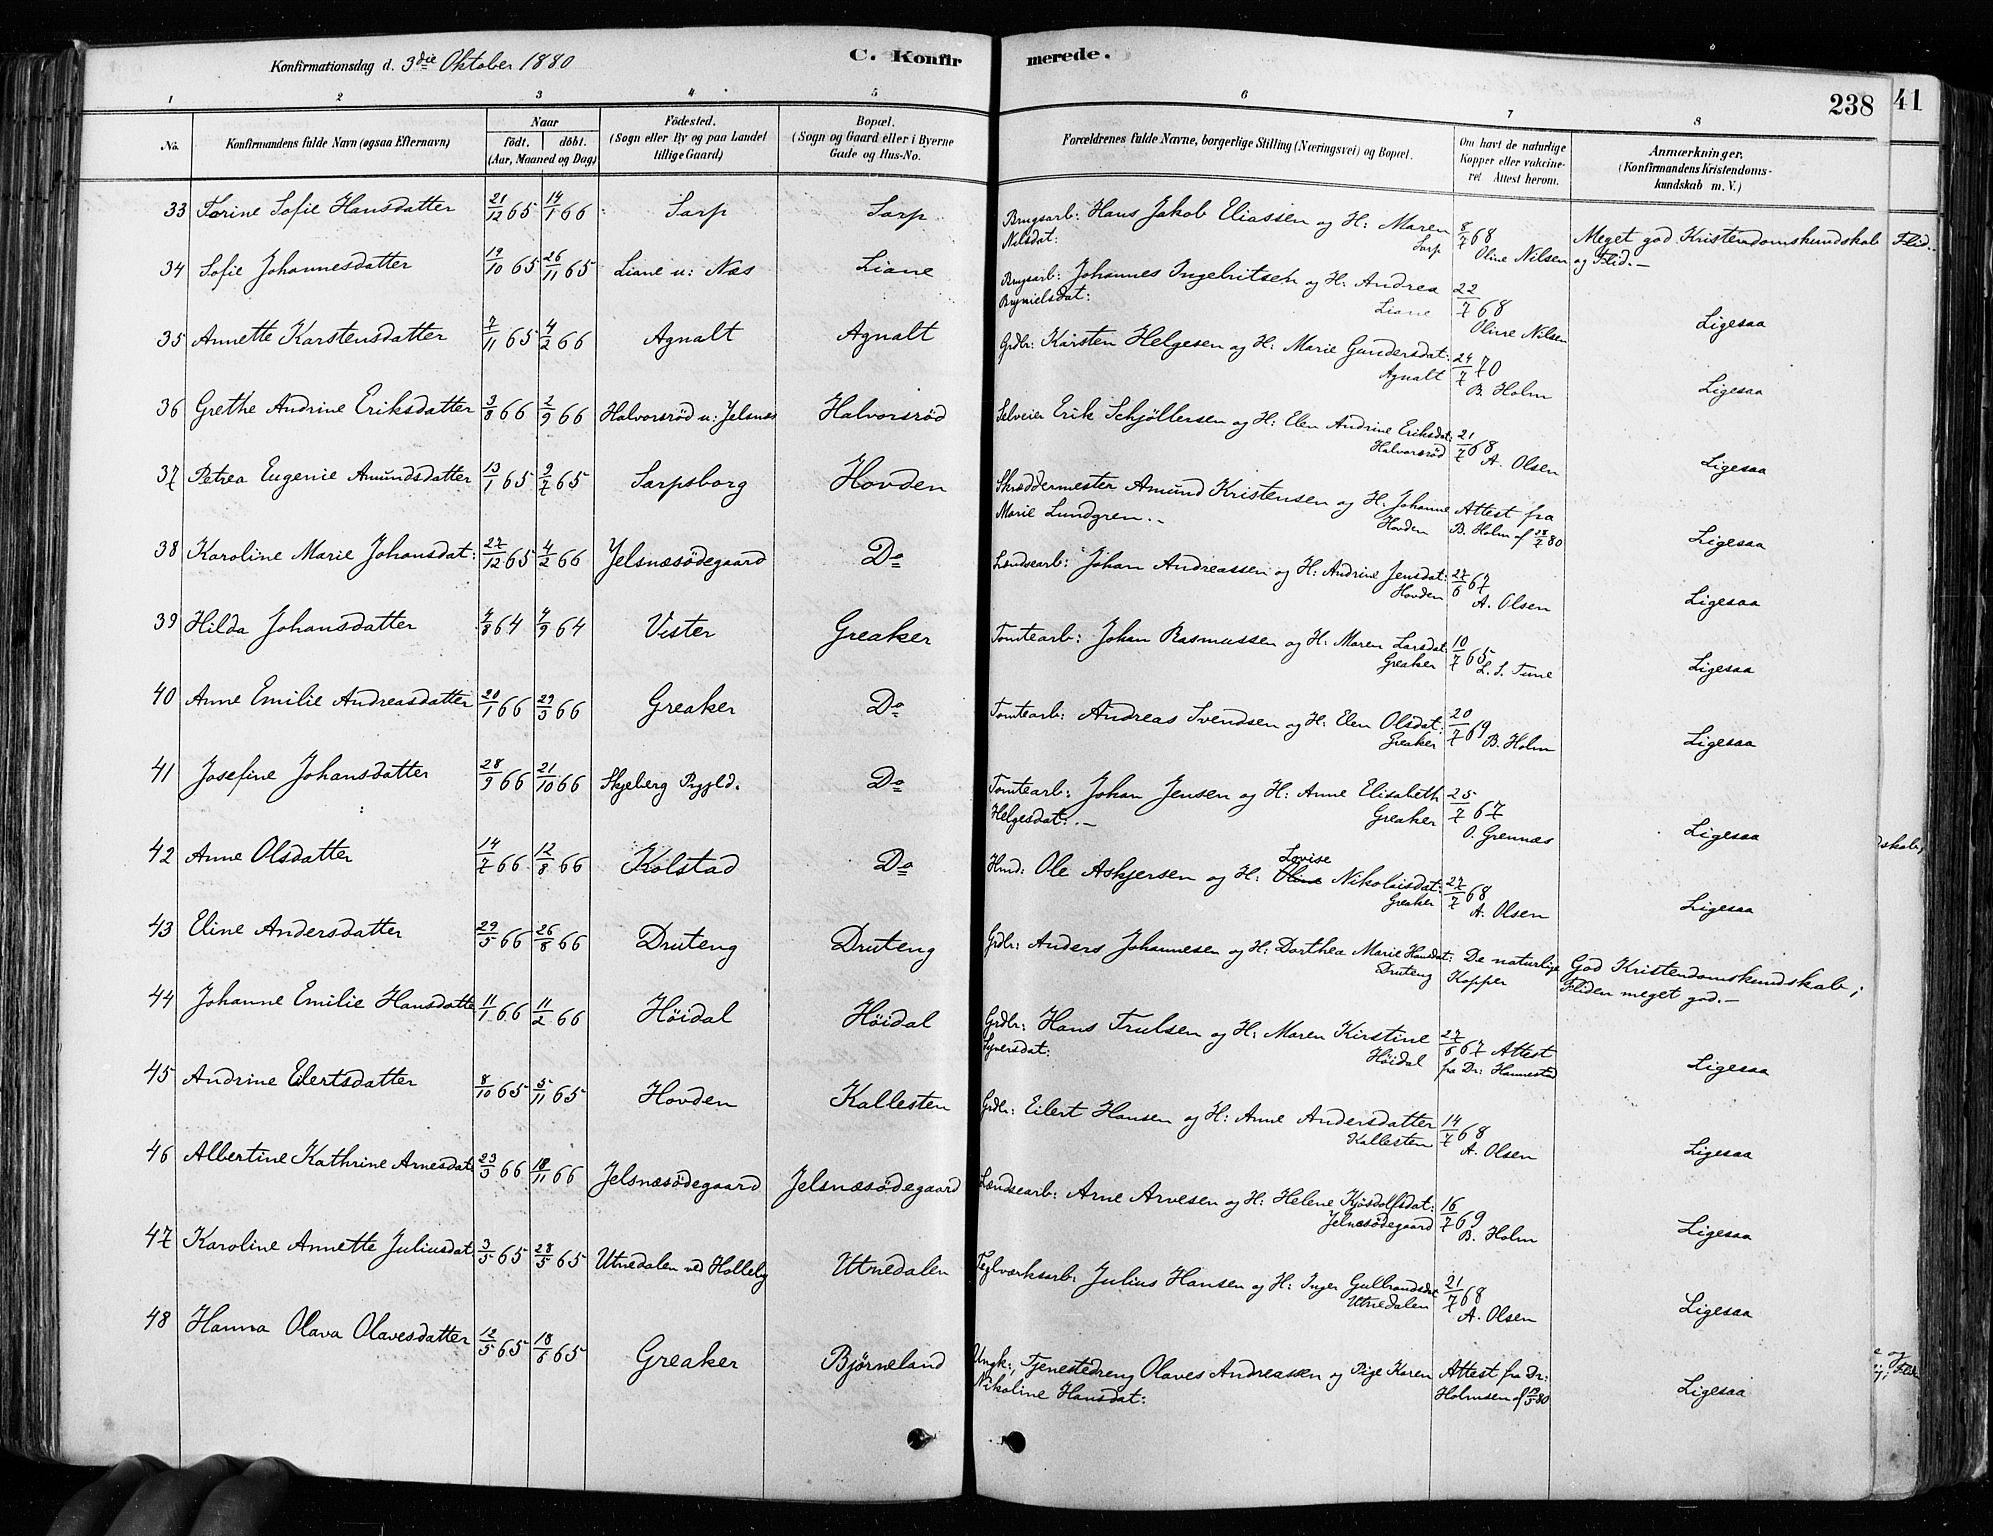 Konfirmationsdag d. 3die Oktober 1880 C. Konfir merede.
238 41
1 2 3 4 5 6 7 8
No. Konfirmandens fulde Navn (ogsaa Efternavn) Naar födt. döbt. (Aar, Maaned og Dag) Födested. (Sogn eller By og paa Landet tillige Gaard) Bopæl. (Sogn og Gaard eller i Byerne Gade og Hus-No. Forældrenes fulde Navne, borgerlige Stilling (Næringsvei) og Bopæl. Om havt de naturlige Kopper eller vakcineret Attest herom. Anmærkninger. (Konfirmandens Kristendomskundskab m. V.)
33 Torine Sofie Hansdatter 21/12 65 14/1 66 Sarp Sarp Brugsarb: Hans Jakob Eliassen og H: Maren Nilsdat: Sarp 8/7 68 Oline Nilsen Meget god Kristendomskundskab og Flid.-
34 Sofie Johannesdatter 19/10 65 26/11 65 Liane u: Næs Liane Brugsarb: Johannes Ingebritsen og H: Andrea Brynielsdat: Liane 22/7 68 Oline Nilsen Ligesaa
35 Annette Karstensdatter 7/11 65 4/2 66 Agnalt Agnalt Grdbr: Karsten Helgesen og H: Marie Gundersdat: Agnalt 24/7 70 B. Holm Ligesaa
36 Grethe Andrine Eriksdatter 3/8 66 2/9 66 Halvorsröd u: Jelsnes Halvorsröd Selveier Erik Schjöllersen og H: Elen Andrine Eriksdat: Halvorsröd 21/7 68 A. Olsen Ligesaa
37 Petrea Eugenie Amundsdatter 13/1 65 9/7 65 Sarpsborg Hovden Skræddermester Amund Kristensen og H. Johanne Marie Lundgren.- Hovden Attest fra B. Holm af 28/7 80 Ligesaa
38 Karoline Marie Johansdat: 27/12 65 4/2 66 Jelsnæsödegaard Do Lændsearb: Johan Andreassen og H: Andrine Jensdat: Hovden 27/6 67 A. Olsen Ligesaa
39 Hilda Johansdatter 4/8 64 4/9 64 Vister Greaker Tomtearb: Johan Rasmussen og H: Maren Larsdat: Greaker 10/7 65 L. S. Tune Ligesaa
40 Anne Emilie Andreasdatter 20/1 66 29/3 66 Greaker Do Tomtearb: Andreas Svendsen og H: Elen Olsdat: Greaker 20/7 69 B. Holm Ligesaa
41 Josefine Johansdatter 28/9 66 21/10 66 Skjeberg Pggld. Do Tomtearb: Johan Jensen og H: Anne Elisabeth Helgesdat:.- Greaker 25/7 67 O. Grennæs Ligesaa
42 Anne Olsdatter 14/7 66 12/8 66 Kolstad Do Hmd: Ole Askjersen og H: Lovise Nikolaisdat: Greaker 27/7 68 A. Olsen Ligesaa
43 Eline Andersdatter 29/5 66 26/8 66 Druteng Druteng Grdbr: Anders Johannesen og H: Dorthea Marie Hansdat: Druteng De naturlige Kopper God Kristendomskundskab; Fliden meget god.-
44 Johanne Emilie Hansdatte 11/1 66 11/2 66 Höidal Höidal Grdbr: Hans Trulsen og H: Maren Kirstine Syversdat: Höidal 27/6 67 Attest fra Dr: Hannestad Ligesaa
45 Andrine Eilertsdatter 8/10 65 5/11 65 Hovden Kallesten Grdbr: Eilert Hansen og H: Anne Andersdatter Kallesten 14/7 68 A. Olsen Ligesaa
46 Albertine Kathrine Arnesdat 23/3 66 18/11 66 Jelsnæsödegaard Jelsnæsödegaard Lændsearb: Arne Arvesen og H: Helene Kjösdolfsdat: Jelnæsödegaard 16/7 69 B. Holm Ligesaa
47 Karoline Annette Juliusdat 3/5 65 28/5 65 Utnedalen ved Holleby Utnedalen Teglværksarb: Julius Hansen og H: Inger Gulbrandsdat Utnedalen 21/7 68 A. Olsen Ligesaa
48 Hanna Olava Olavesdatter 12/5 65 18/6 65 Greaker Björneland Ungk:, Tjenestedreng Olaves Andreassen og Pige Karen Nikoline Hansdat: Attest fra Dr: Holmsen af 19/5 80 Ligesaa
Flid.-
dskab,